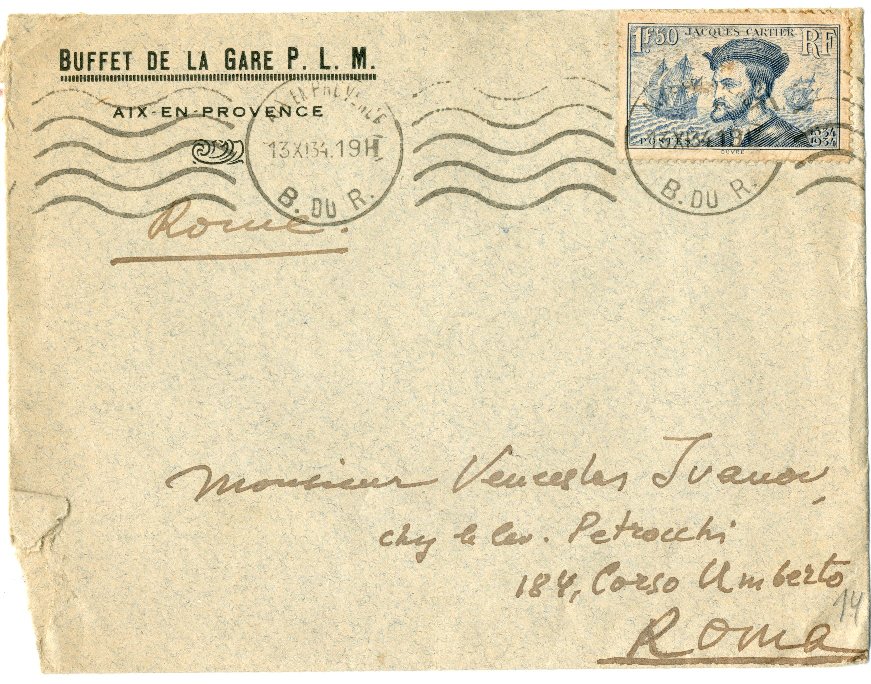 BUFFET DE LA GARE P. L. M.
AIX-EN-PROVENCE
1F50 JACQUES CARTIER RF
1534
1934
13 XI 34. 19H
B. DU R.
13 XI 34. 19H
B. DU R.
Rome.
Monsieur Venceslas Ivanov,
chez le Cav. Petrocchi
184, Corso Umberto
Roma
14